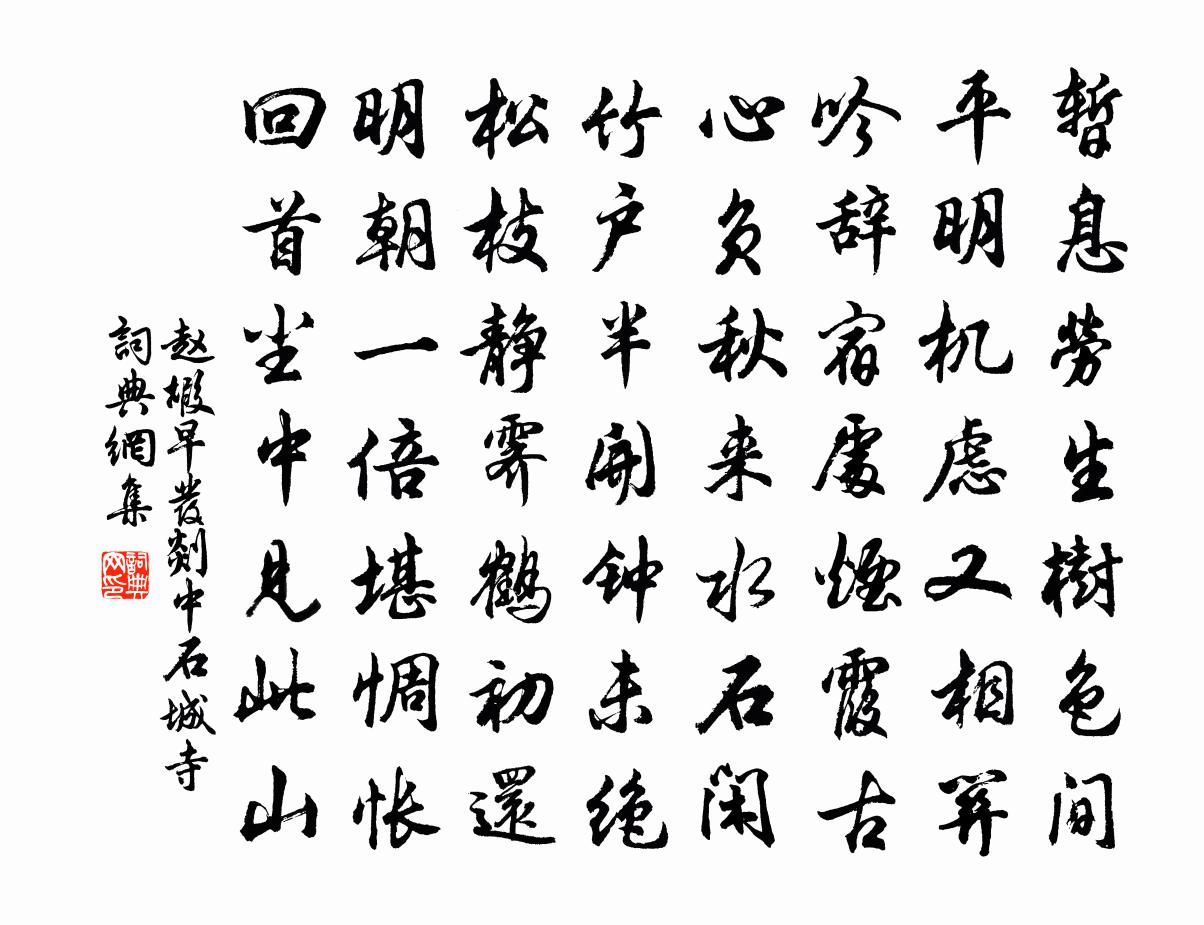 暫息勞生樹色间
平明机虑又相关
吟辞宿處煙霞古
心负秋来水石闲
竹户半開钟未绝
松枝静霁鹤初還
明朝一倍堪惆怅
回首尘中见此山
赵嘏早發剡中石城寺
詞典網集
詞典
网印